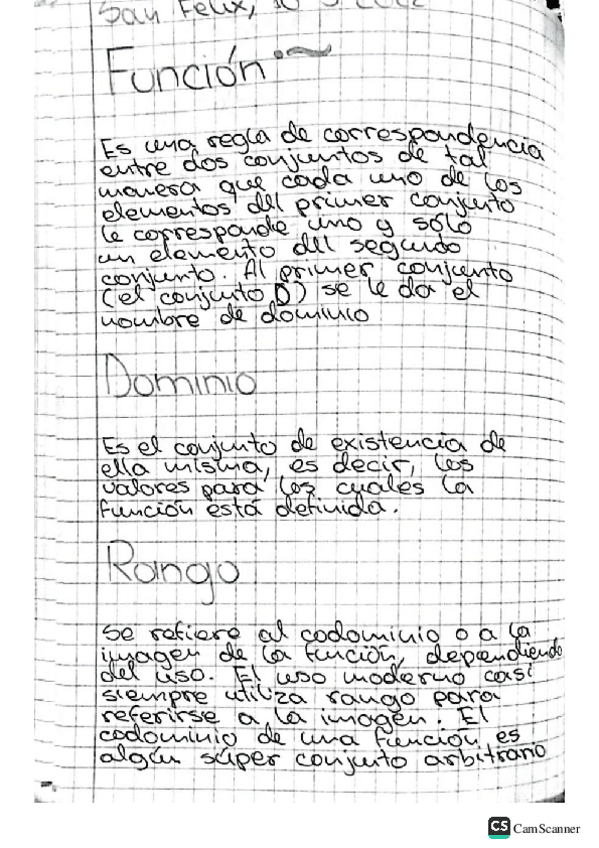 San Felix,
Función
Es una regla de correspondencia
entre dos conjuntos de tal
manera que cada uno de los
elementos del primer conjunto
le corresponde uno y sólo
un elemento del segundo
conjunto. Al primer conjunto
(el conjunto D) se le da el
nombre de dominio
Dominio
Es el conjunto de existencia de
ella misma, es decir, los
valores para los cuales la
función está definida.
Rango
Se refiere al codominio o a la
imagen de la función, dependiendo
del uso. El uso moderno casi
siempre utiliza rango para
referirse a la imagen. El
codominio de una función es
algún súper conjunto arbitrario
CS CamScanner